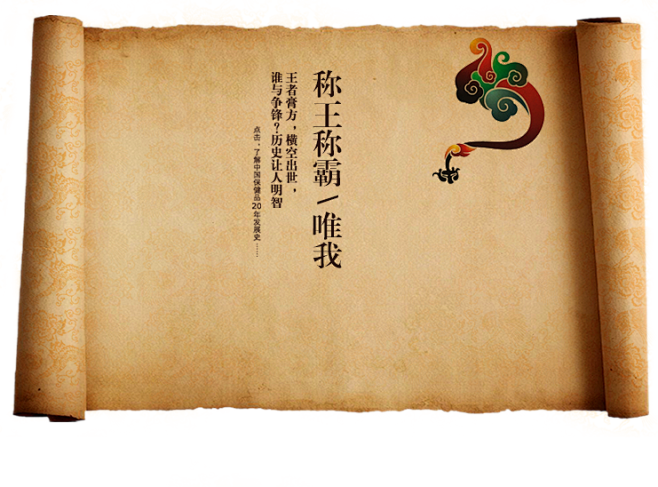 称王称霸/唯我
王者膏方，横空出世，
谁与争锋？历史让人明智
点击、了解中国保健品20年发展史……